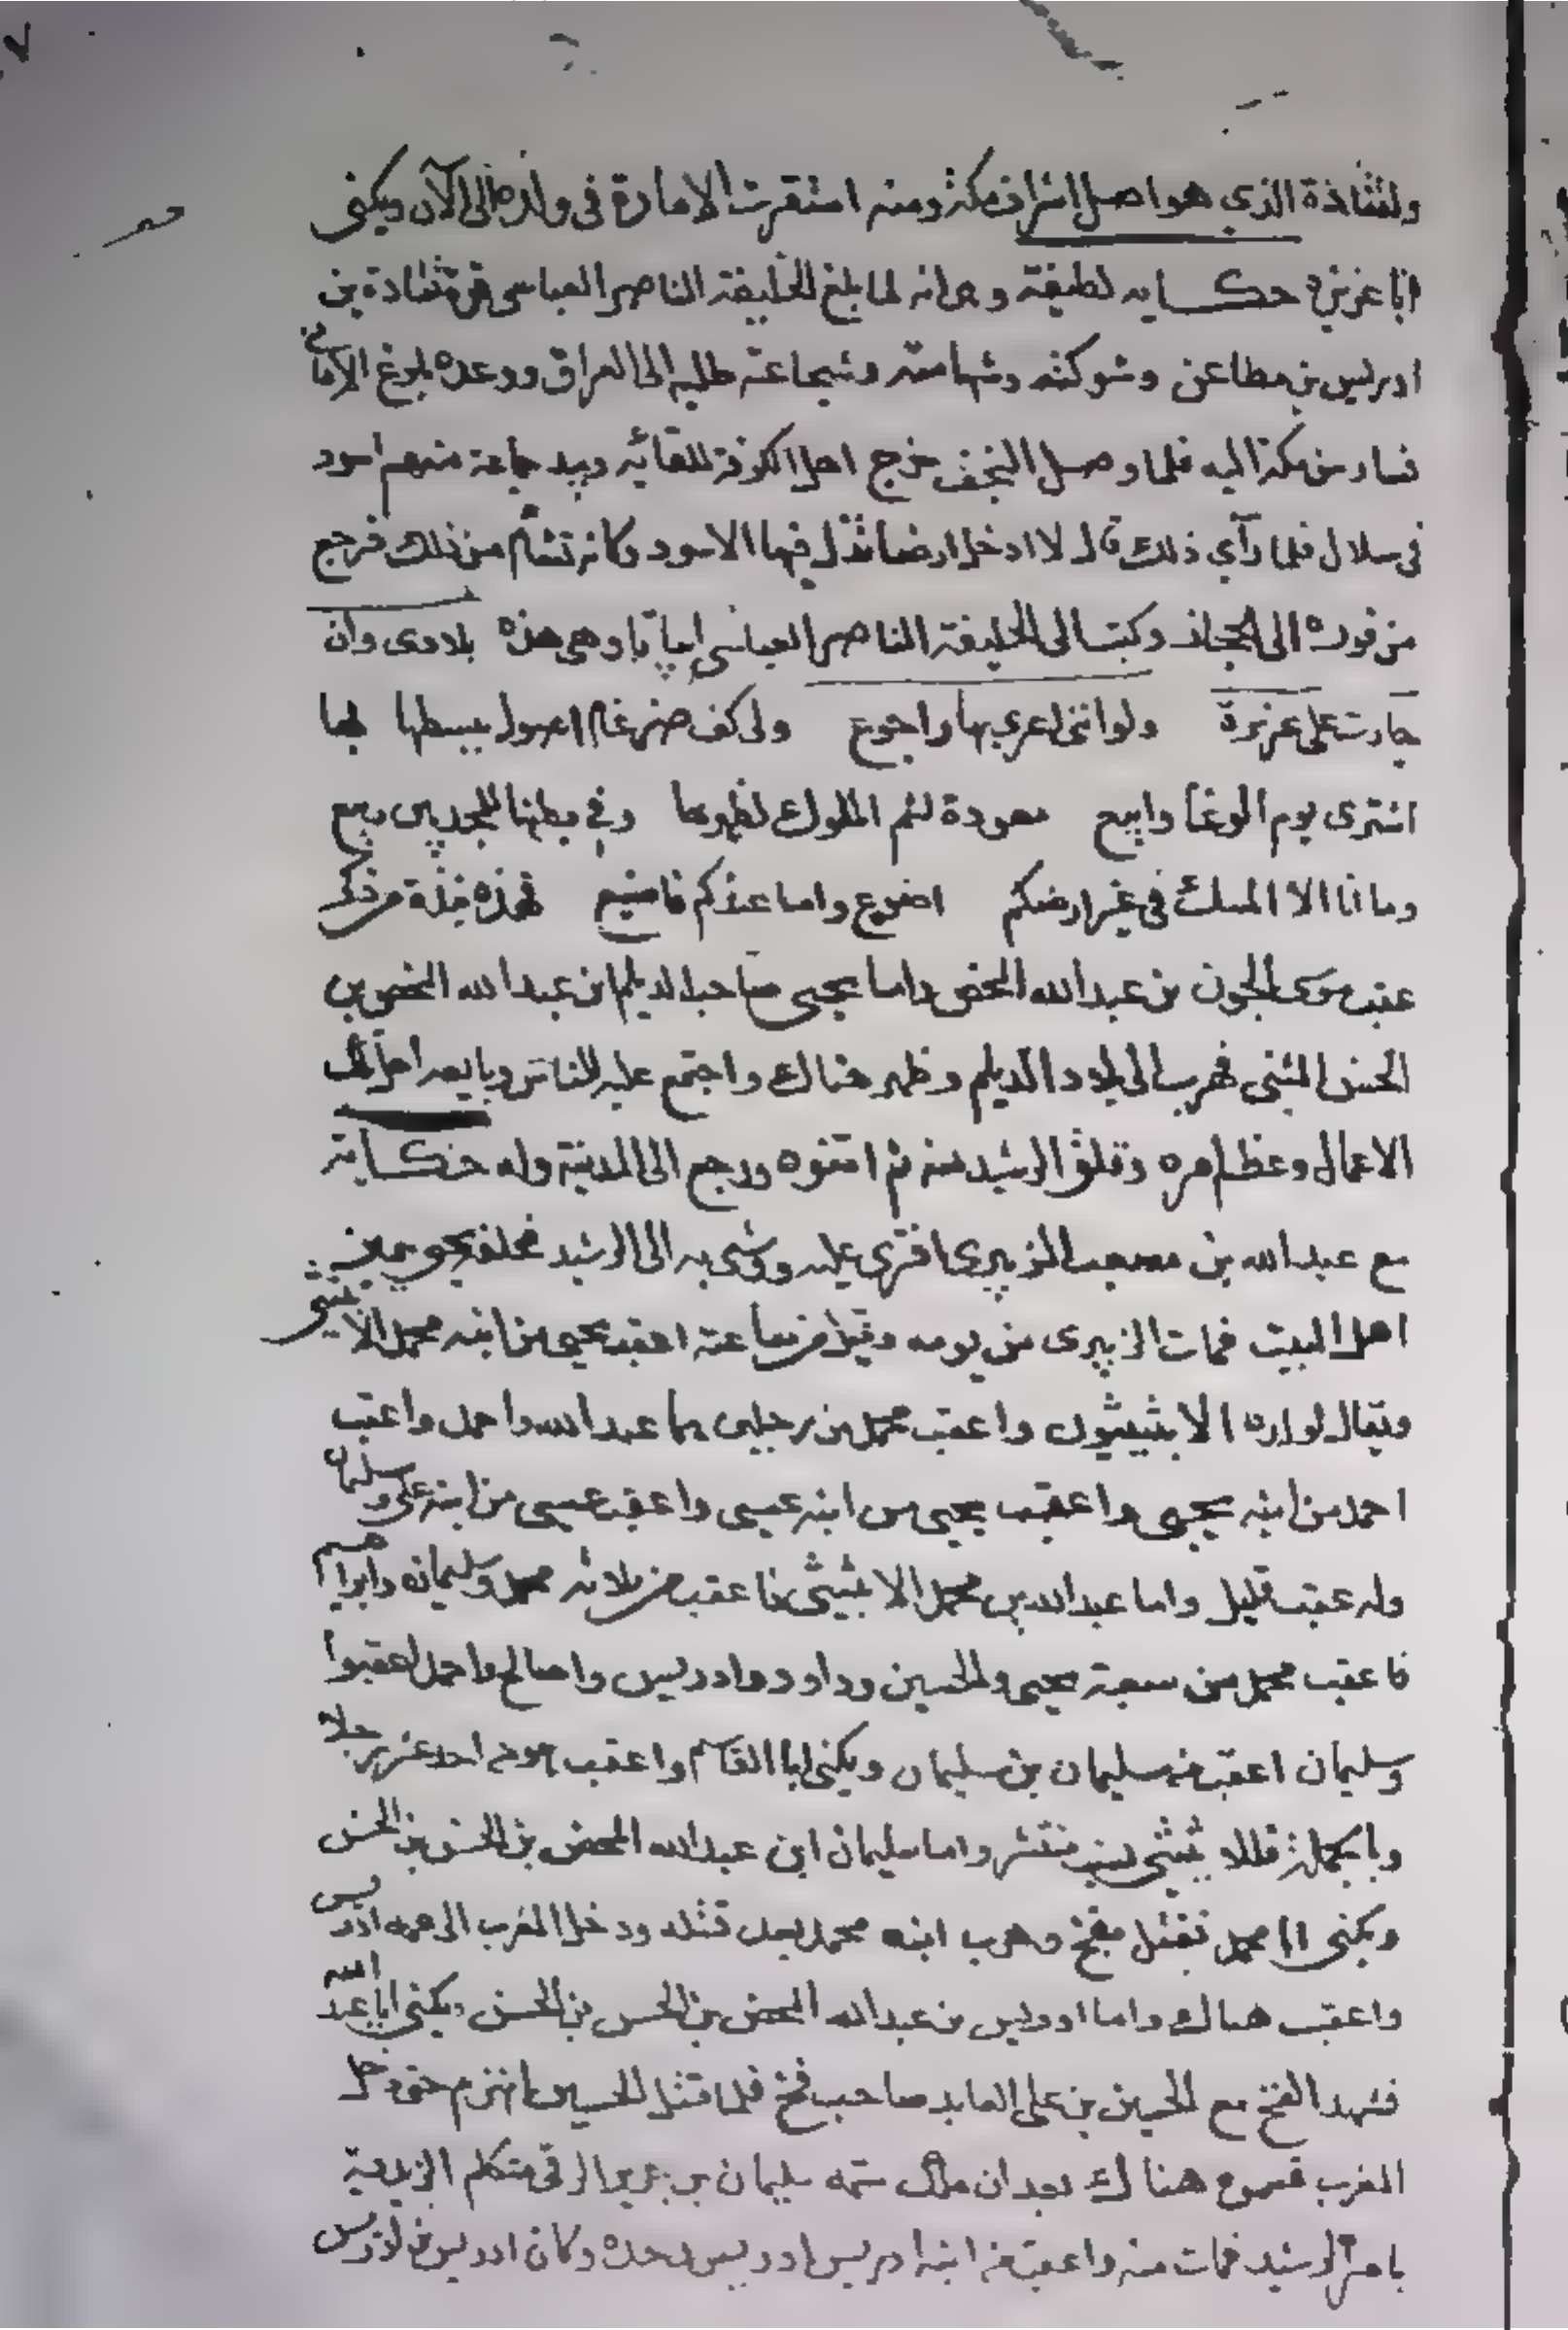 ولقتادة الذي هو اصل اشراف مكة ومنه استقرت الامارة في ولده الى الآن ويكنى
ابا عزيز حكايه لطيفة وهي انه لما بلغ الخليفة الناصر العباسي قوة قتادة بن
ادريس بن مطاعن وشوكته وشهامته وشجاعته طلبه الى العراق ووعده بلوغ الاماني
فسار من مكة اليه فلما وصل النجف خرج اهل الكوفة للقائه وبيد جماعة منهم اسود
في سلاسل فلما رآي ذلك قال لا ادخل ارضا تذل فيها الاسود وكانه تشأم من ذلك فرجع
من فوره الى الحجاز وكتب الى الخليفة الناصر العباسي ابياتا وهي هذه بلادي وان
جارت على عزيزة ولو انني اعرى بها واجوع ولى كف ضرغام اصول ببسطها بها
اشترى يوم الوغا وابيع معودة لثم الملوك لظهرها وفي بطنها للمجدبين ربيع
وما انا الا المسك في غير ارضكم اضوع واما عندكم فاضيع فهذه نبذة من ذكر
عقب موسى الجون بن عبد الله المحض واما يحيى صاحب الديلم ابن عبد الله المحض بن
الحسن المثنى فهرب الى بلاد الديلم وظهر هناك واجتمع عليه الناس وبايعه اهل تلك
الاعمال وعظم امره وقلق الرشيد منه ثم امنوه ورجع الى المدينة وله حكاية
مع عبد الله بن مصعب الزبيري افترى عليه ووشى به الى الرشيد فحلفه يحيى يمين
اهل البيت فمات الزبيرى من يومه وقيل من ساعته اعقب يحيى من ابنه محمد الاثيبثي
ويقال لولده الاثيبثيون واعقب محمد من رجلين هما عبد الله واحمد واعقب
احمد من ابنه يحيى واعقب يحيى من ابنه عيسى واعقب عيسى من ابنه على وسليمان
وله عقب قليل واما عبد الله بن محمد الاثيبثى فاعقب من ثلاثه محمد وسليمان وابراهيم
فاعقب محمد من سبعة يحيى والحسين وداود وادريس وصالح واحمد اعقبوا
وسليمان اعقب منه سليمان بن سليمان ويكنى ابا القاسم واعقب احد عشر رجلا
وبالجملة منتشر واما سليمان ابن عبد الله المحض بن الحسن بن الحسن
ويكنى ابا محمد فقتل بفخ وهرب ابنه محمد بعد قتله ودخل المغرب الى عمه ادريس
واعقب هناك واما ادريس بن عبد الله المحض بن الحسن بن الحسن ويكنى ابا عبد الله
فشهد الفخ مع الحسين بن على العابد صاحب فخ فلما قتل الحسين انهزم حتى دخل
المغرب فسموه هناك بعد ان ملك سمه سليمان بن جرير الرقى متكلم الزيدية
بامر الرشيد فمات منه واعقب من ابنه ادريس ادريس وحده وكان ادريس بن ادريس